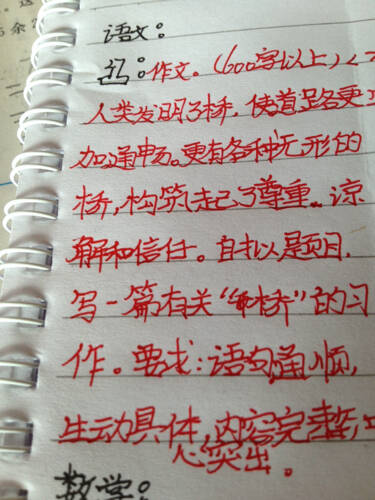 语文:
作文。(600字以上)
人类发明了桥,使道路更
加通畅。更有各种无形的
桥,构筑起了尊重、谅
解和信任。自拟题目,
写一篇有关“桥”的习
作。要求:语句通顺,
生动具体,内容完整,中
心突出。
数学: